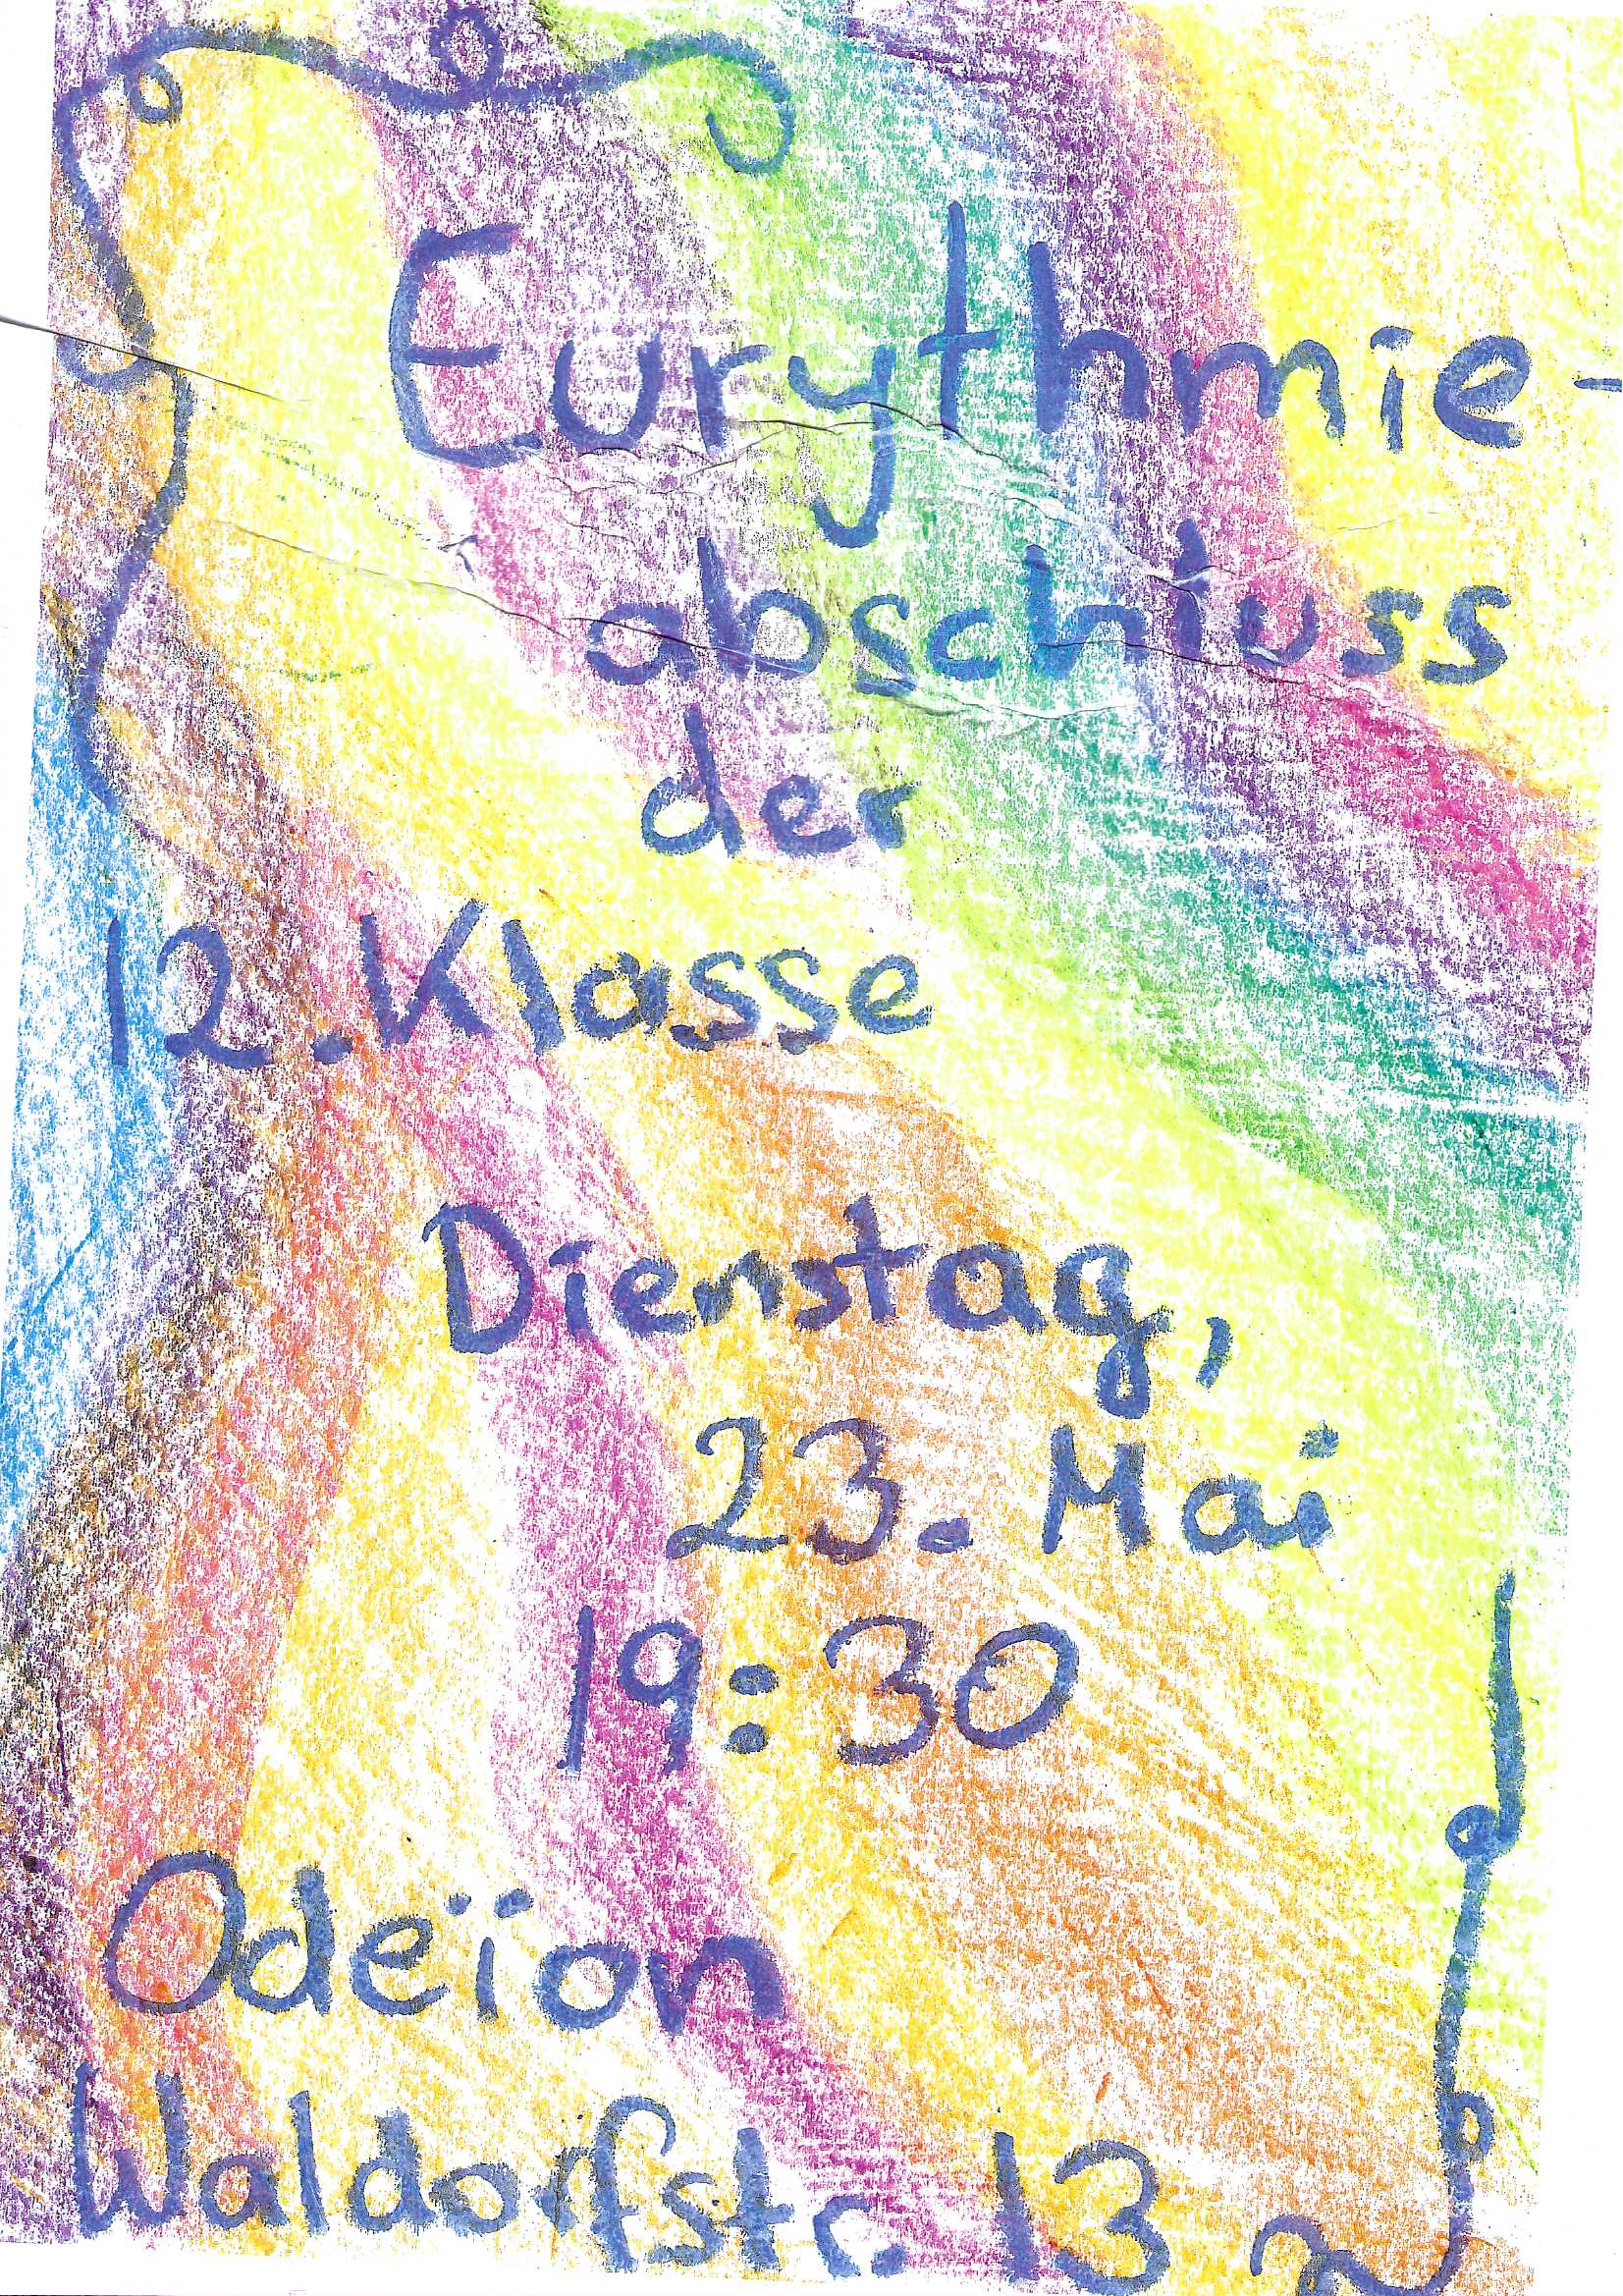 Eurythmie-
abschluss
der
12. Klasse
Dienstag,
23. Mai
19:30
Odeïon
Waldorfstr. 13